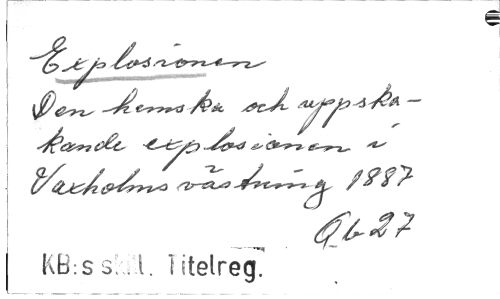 Explosionen
Den hemska och uppska-
kande explosionen i
Vaxholms västning 1887
Qb 27
KB:s skill. Titelreg.